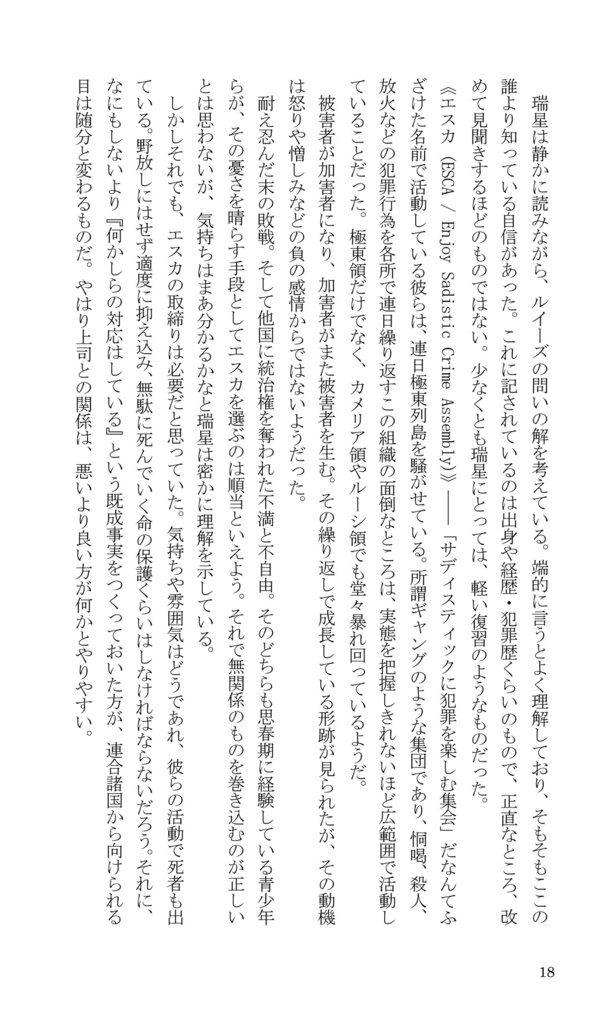 瑞星は静かに読みながら、ルイーズの問いの解を考えている。端的に言うとよく理解しており、そもそもここの
誰より知っている自信があった。これに記されているのは出身や経歴・犯罪歴くらいのもので、正直なところ、改
めて見聞きするほどのものではない。少なくとも瑞星にとっては、軽い復習のようなものだった。
　《エスカ（ESCA / Enjoy Sadistic Crime Assembly）》――「サディスティックに犯罪を楽しむ集会」だなんてふ
ざけた名前で活動している彼らは、連日極東列島を騒がせている。所謂ギャングのような集団であり、恫喝、殺人、
放火などの犯罪行為を各所で連日繰り返すこの組織の面倒なところは、実態を把握しきれないほど広範囲で活動し
ていることだった。極東領だけでなく、カメリア領やルーシ領でも堂々暴れ回っているようだ。
　被害者が加害者になり、加害者がまた被害者を生む。その繰り返しで成長している形跡が見られたが、その動機
は怒りや憎しみなどの負の感情からではないようだった。
　耐え忍んだ末の敗戦。そして他国に統治権を奪われた不満と不自由。そのどちらも思春期に経験している青少年
らが、その憂さを晴らす手段としてエスカを選ぶのは順当といえよう。それで無関係のものを巻き込むのが正しい
とは思わないが、気持ちはまあ分かるかなと瑞星は密かに理解を示している。
　しかしそれでも、エスカの取締りは必要だと思っていた。気持ちや雰囲気はどうであれ、彼らの活動で死者も出
ている。野放しにはせず適度に抑え込み、無駄に死んでいく命の保護くらいはしなければならないだろう。それに、
なにもしないより『何かしらの対応はしている』という既成事実をつくっておいた方が、連合諸国から向けられる
目は随分と変わるものだ。やはり上司との関係は、悪いより良い方が何かとやりやすい。
18